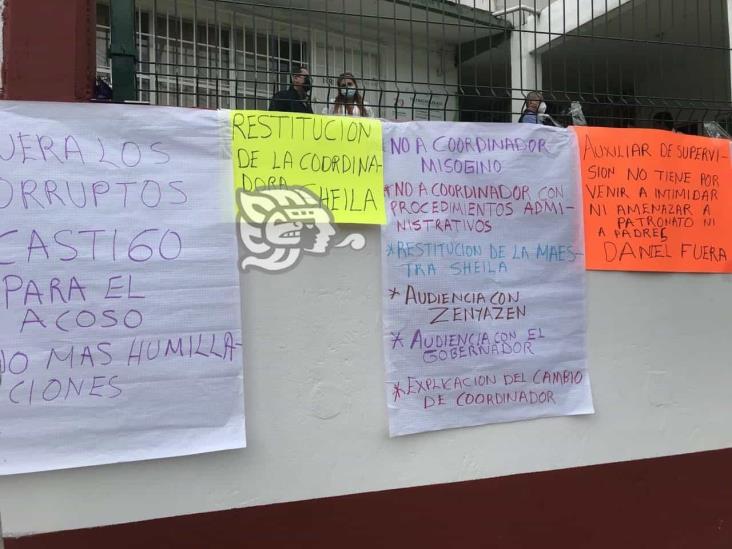 UERA LOS
ORRUPTOS
CASTIGO
PARA EL
ACOSO
NO MAS HUMILLA-
CIONES
RESTITUCION
DE LA COORDINA-
DORA SHEILA
NO A COORDINADOR
MISOGINO
*NO A COORDINADOR CON
PROCEDIMIENTOS ADMI-
NISTRATIVOS
*RESTITUCION DE LA MAES-
TRA SHEILA
* AUDIENCIA CON
ZENYAZEN
* AUDIENCIA CON EL
GOBERNADOR
*EXPLICACION DEL CAMBIO
DE COORDINADOR
AUXILIAR DE SUPERVI-
SION NO TIENE POR
VENIR A INTIMIDAR
NI AMENAZAR A
PATRONATO NI
A PADRES
DANIEL FUERA